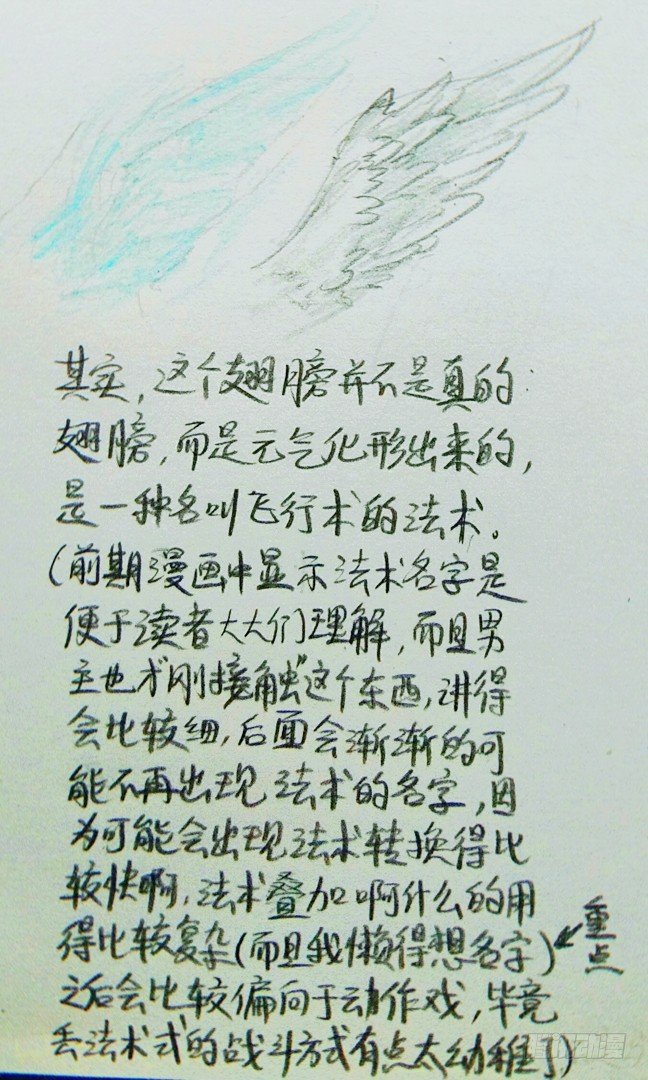 其实，这个翅膀并不是真的
翅膀，而是元气化形出来的，
是一种名叫飞行术的法术。
(前期漫画中显示法术名字是
便于读者大大们理解，而且男
主也才刚接触"这个东西，讲得
会比较细，后面会渐渐的可
能不再出现法术的名字，因
为可能会出现法术转换得比
较快啊，法术叠加啊什么的用
得比较复杂(而且我懒得想名字)←重点
之后会比较偏向于动作戏，毕竟
丢法术式的战斗方式有点太幼稚了)